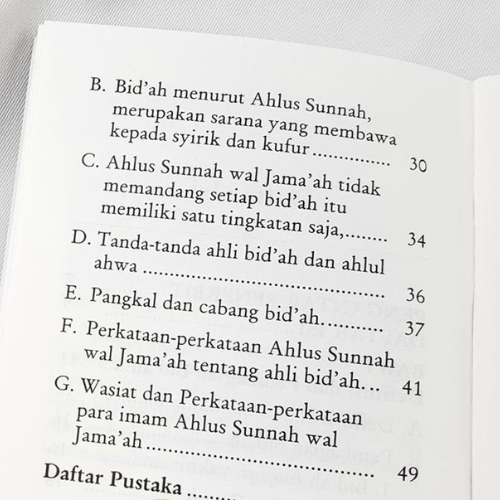 B. Bid'ah menurut Ahlus Sunnah,
merupakan sarana yang membawa
kepada syirik dan kufur............... 30
C. Ahlus Sunnah wal Jama'ah tidak
memandang setiap bid'ah itu
memiliki satu tingkatan saja,........ 34
D. Tanda-tanda ahli bid'ah dan ahlul
ahwa ........................................ 36
E. Pangkal dan cabang bid'ah........... 37
F. Perkataan-perkataan Ahlus Sunnah
wal Jama'ah tentang ahli bid'ah... 41
G. Wasiat dan Perkataan-perkataan
para imam Ahlus Sunnah wal
Jama'ah .................................... 49
Daftar Pustaka ....................